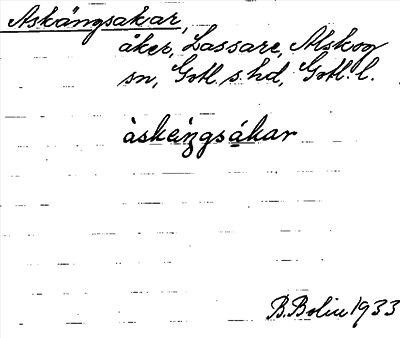 Askängsakar,
åker, Lassare, Alskog
sn, Gotl. s. hd, Gotl. l.
àskäŋgsákar
B. Bolin 1933